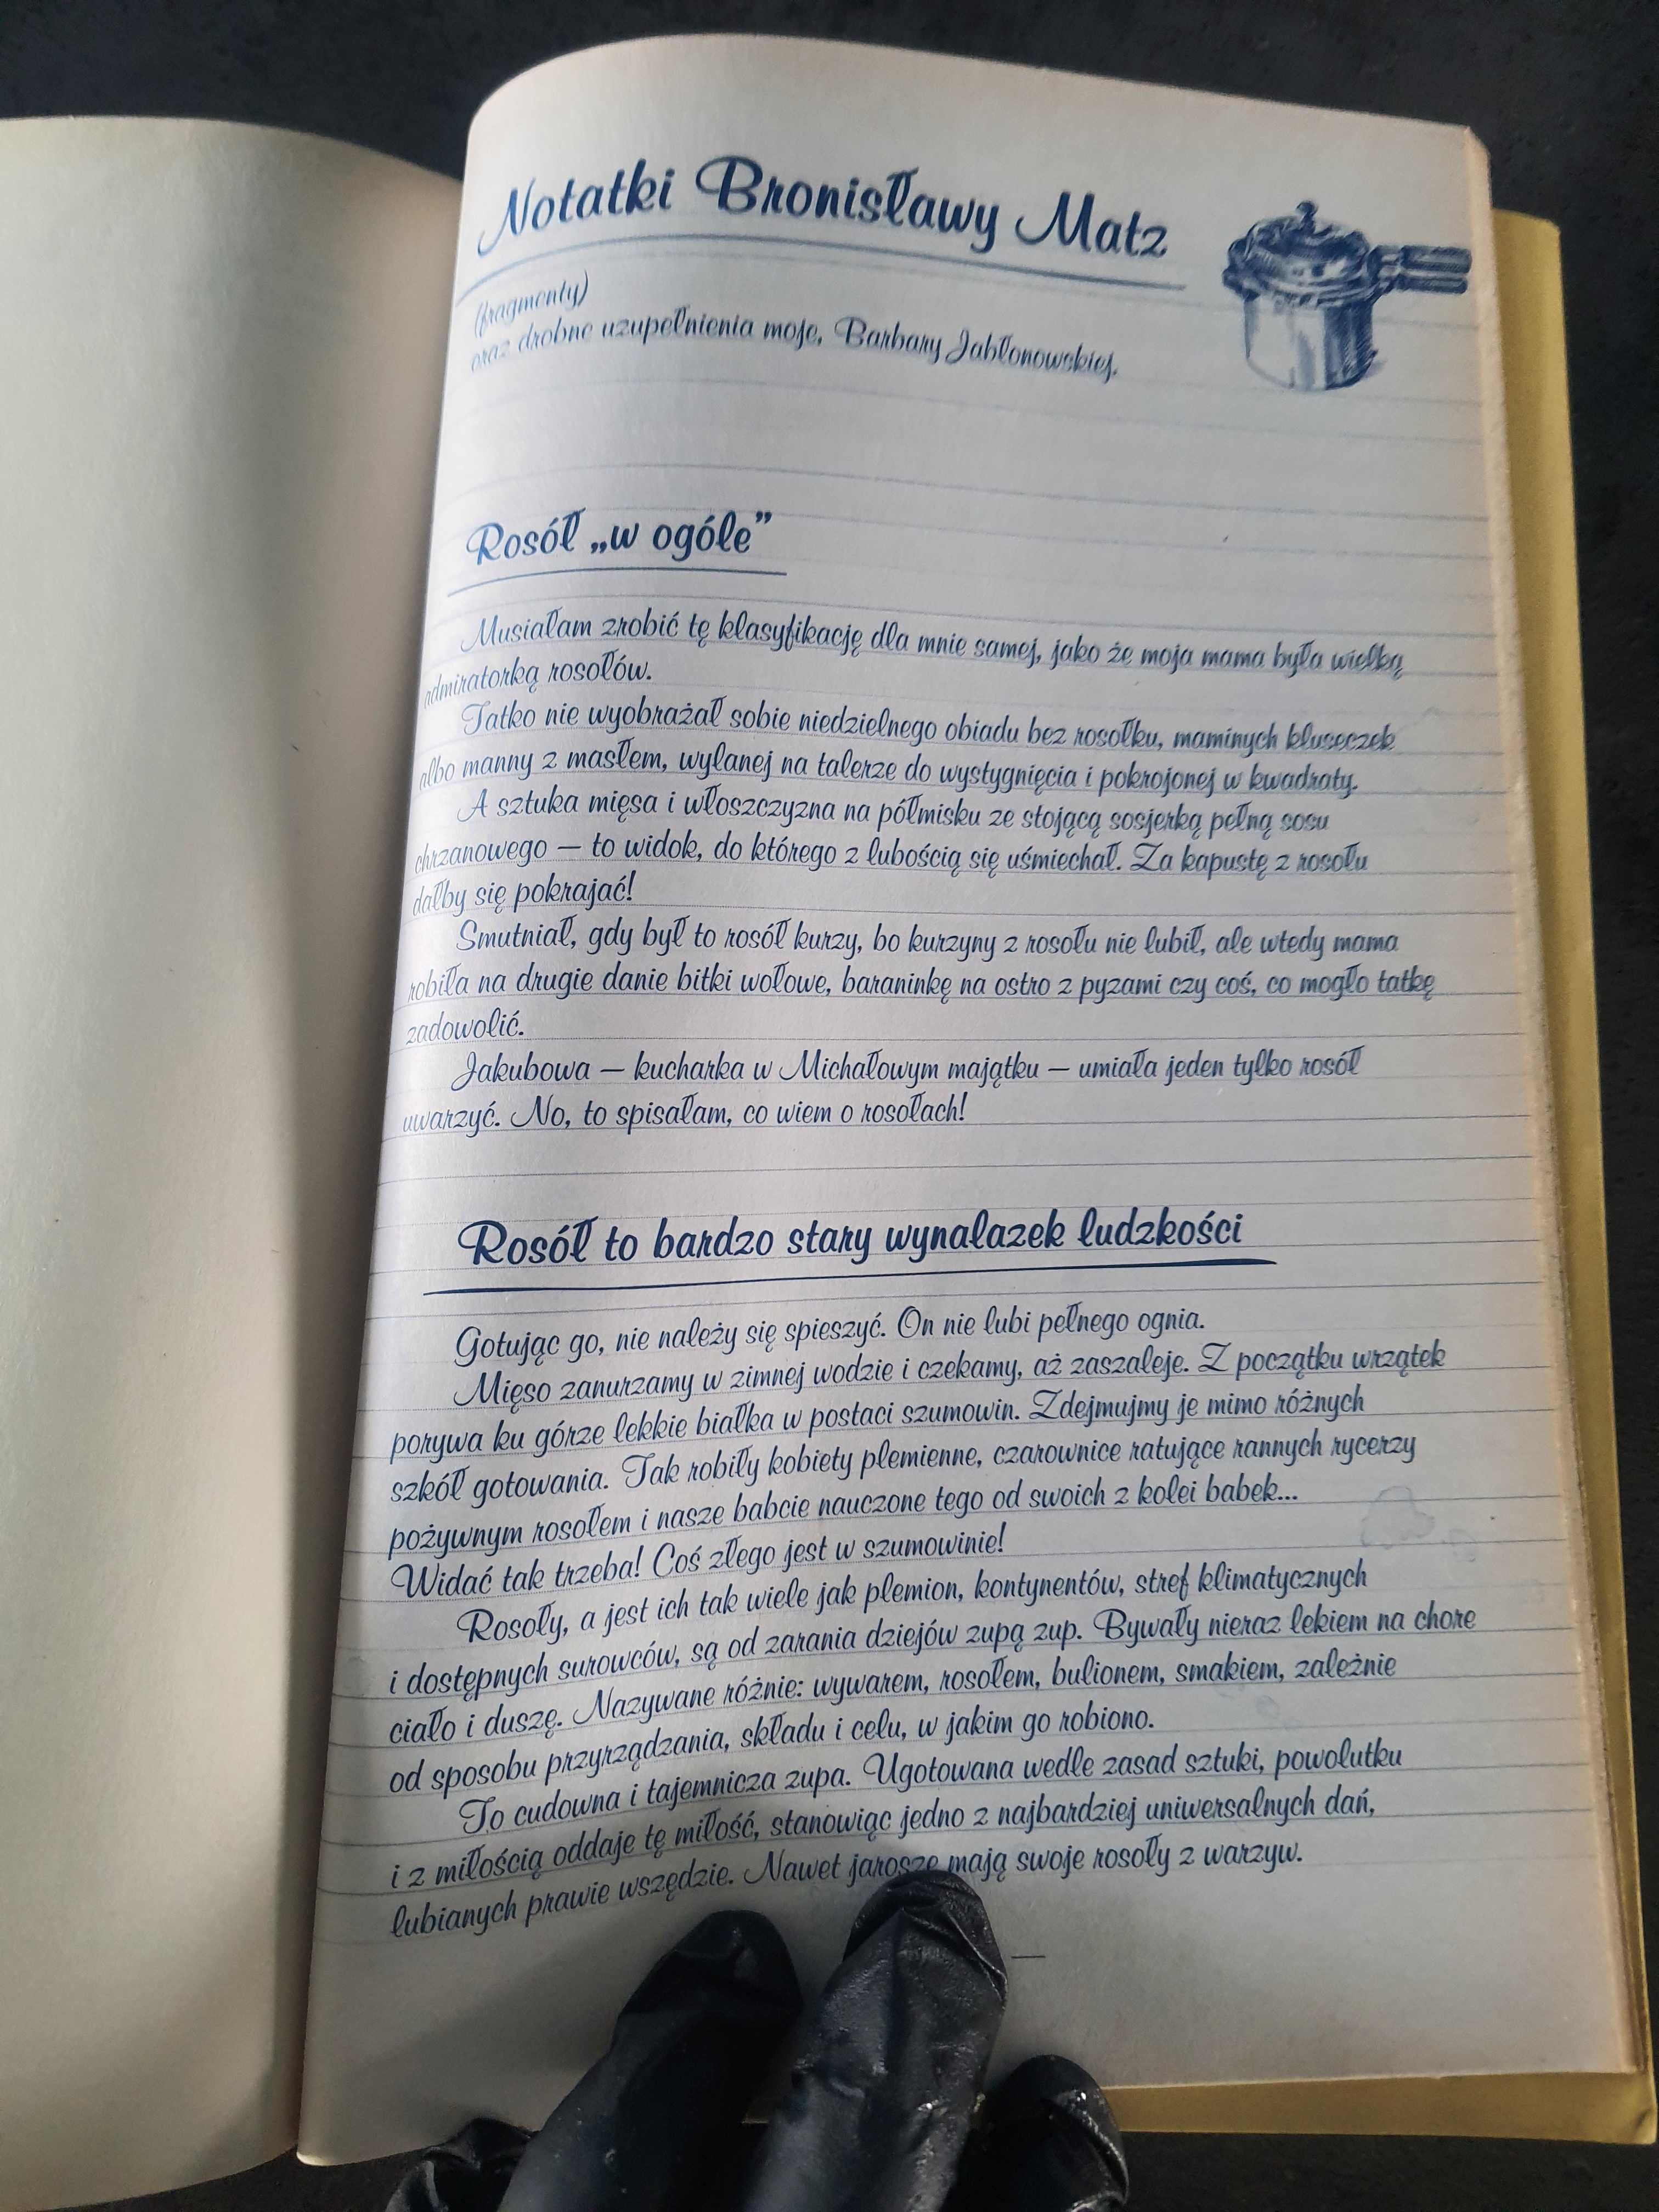 Notatki Bronisławy Matz
(fragmenty)
oraz drobne uzupełnienia moje, Barbary Jabłonowskiej.
Rosół „w ogóle”
Musiałam zrobić tę klasyfikację dla mnie samej, jako że moja mama była wielką
admiratorką rosołów.
Tatko nie wyobrażał sobie niedzielnego obiadu bez rosołku, maminych kluseczek
albo manny z masłem, wylanej na talerze do wystygnięcia i pokrojonej w kwadraty.
A sztuka mięsa i włoszczyzna na półmisku ze stojącą sosjerką pełną sosu
chrzanowego — to widok, do którego z lubością się uśmiechał. Za kapustę z rosołu
dałby się pokrajać!
Smutniał, gdy był to rosół kurzy, bo kurzyny z rosołu nie lubił, ale wtedy mama
robiła na drugie danie bitki wołowe, baraninkę na ostro z pyzami czy coś, co mogło tatkę
zadowolić.
Jakubowa — kucharka w Michałowym majątku — umiała jeden tylko rosół
uwarzyć. No, to spisałam, co wiem o rosołach!
Rosół to bardzo stary wynalazek ludzkości
Gotując go, nie należy się spieszyć. On nie lubi pełnego ognia.
Mięso zanurzamy w zimnej wodzie i czekamy, aż zaszaleje. Z początku wrzątek
porywa ku górze lekkie białka w postaci szumowin. Zdejmujmy je mimo różnych
szkół gotowania. Tak robiły kobiety plemienne, czarownice ratujące rannych rycerzy
pożywnym rosołem i nasze babcie nauczone tego od swoich z kolei babek...
Widać tak trzeba! Coś złego jest w szumowinie!
Rosoły, a jest ich tak wiele jak plemion, kontynentów, stref klimatycznych
i dostępnych surowców, są od zarania dziejów zupą zup. Bywały nieraz lekiem na chore
ciało i duszę. Nazywane różnie: wywarem, rosołem, bulionem, smakiem, zależnie
od sposobu przyrządzania, składu i celu, w jakim go robiono.
To cudowna i tajemnicza zupa. Ugotowana wedle zasad sztuki, powolutku
i z miłością oddaje tę miłość, stanowiąc jedno z najbardziej uniwersalnych dań,
lubianych prawie wszędzie. Nawet jarosze mają swoje rosoły z warzyw.